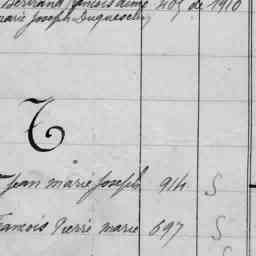 Bertrand françois aimé 409 de 1910
marie Joseph Duquesclin
T
Jean marie Joseph 914 S
françois Pierre marie 697 S